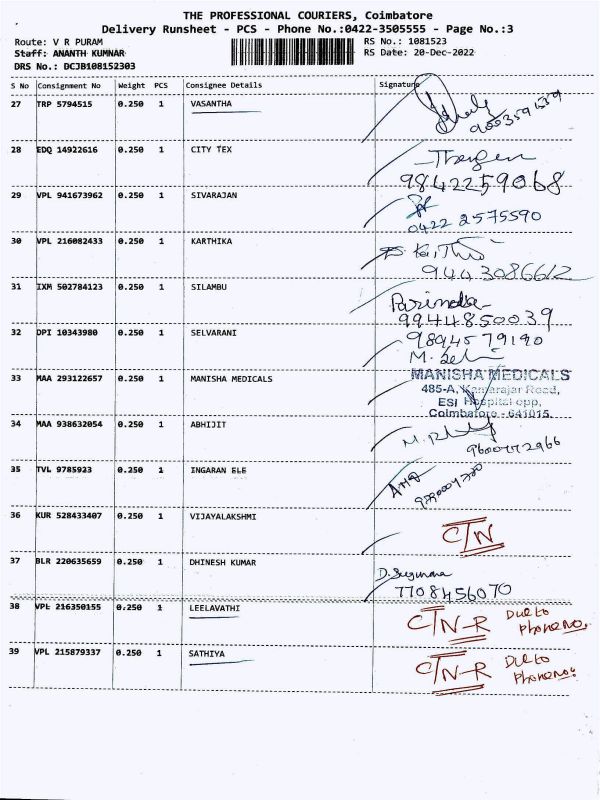 THE PROFESSIONAL COURIERS, Coimbatore
Delivery Runsheet - PCS - Phone No.:0422-3505555 - Page No.:3
Route: V R PURAM
RS No.: 1081523
Staff: ANANTH KUMNAR
RS Date: 20-Dec-2022
DRS No.: DCJB108152303
S No Consignment No Weight PCS Consignee Details Signature
27 TRP 5794515 0.250 1 VASANTHA
28 EDQ 14922616 0.250 1 CITY TEX
9842259068
29 VPL 941673962 0.250 1 SIVARAJAN
0422 2575590
30 VPL 216082433 0.250 1 KARTHIKA
9443086612
31 IXM 502784123 0.250 1 SILAMBU
9944850039
32 DPI 10343980 0.250 1 SELVARANI
9894579190
33 MAA 293122657 0.250 1 MANISHA MEDICALS
MANISHA MEDICALS
485-A, Kamarajar Road,
ESI Hospital opp,
Coimbatore - 641015.
34 MAA 938632054 0.250 1 ABHIJIT
35 TVL 9785923 0.250 1 INGARAN ELE
36 KUR 528433407 0.250 1 VIJAYALAKSHMI
CTN
37 BLR 220635659 0.250 1 DHINESH KUMAR
7708456070
38 VPL 216350155 0.250 1 LEELAVATHI
CTN-R Due to
Phone no.
39 VPL 215879337 0.250 1 SATHIYA
CTN-R Due to
Phone no: